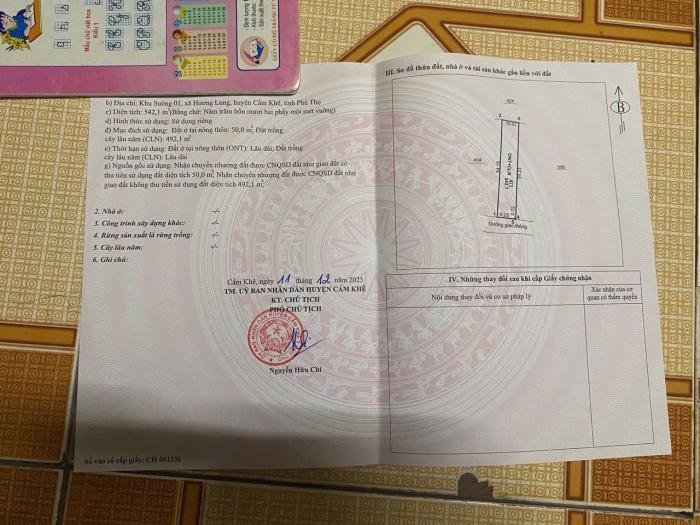 Mẫu chữ viết hoa
Kiểu 1
b) Địa chỉ: Khu Suông 01, xã Hương Lung, huyện Cẩm Khê, tỉnh Phú Thọ
c) Diện tích: 542,1 m²(Bằng chữ: Năm trăm bốn mươi hai phẩy một mét vuông)
d) Hình thức sử dụng: Sử dụng riêng
đ) Mục đích sử dụng: Đất ở tại nông thôn: 50,0 m²; Đất trồng
cây lâu năm (CLN): 492,1 m²
e) Thời hạn sử dụng: Đất ở tại nông thôn (ONT): Lâu dài; Đất trồng
cây lâu năm (CLN): Lâu dài
g) Nguồn gốc sử dụng: Nhận chuyển nhượng đất được CNQSD đất như giao đất có
thu tiền sử dụng đất diện tích 50,0 m²; Nhận chuyển nhượng đất được CNQSD đất như
giao đất không thu tiền sử dụng đất diện tích 492,1 m².
2. Nhà ở: -/-
3. Công trình xây dựng khác: -/-
4. Rừng sản xuất là rừng trồng: -/-
5. Cây lâu năm: -/-
6. Ghi chú:
Cẩm Khê, ngày 11 tháng 12 năm 2023
TM. ỦY BAN NHÂN DÂN HUYỆN CẨM KHÊ
KT. CHỦ TỊCH
PHÓ CHỦ TỊCH
Nguyễn Hữu Chí
Số vào sổ cấp giấy: CH 001336
III. Sơ đồ thửa đất, nhà ở và tài sản khác gắn liền với đất
B
424
2 3
10.01
454
500
54.16
ONT+CLN
542.1
54.23
1 9.28 0.72 4
5
Đường giao thông
IV. Những thay đổi sau khi cấp Giấy chứng nhận
Nội dung thay đổi và cơ sở pháp lý
Xác nhận của cơ
quan có thẩm quyền